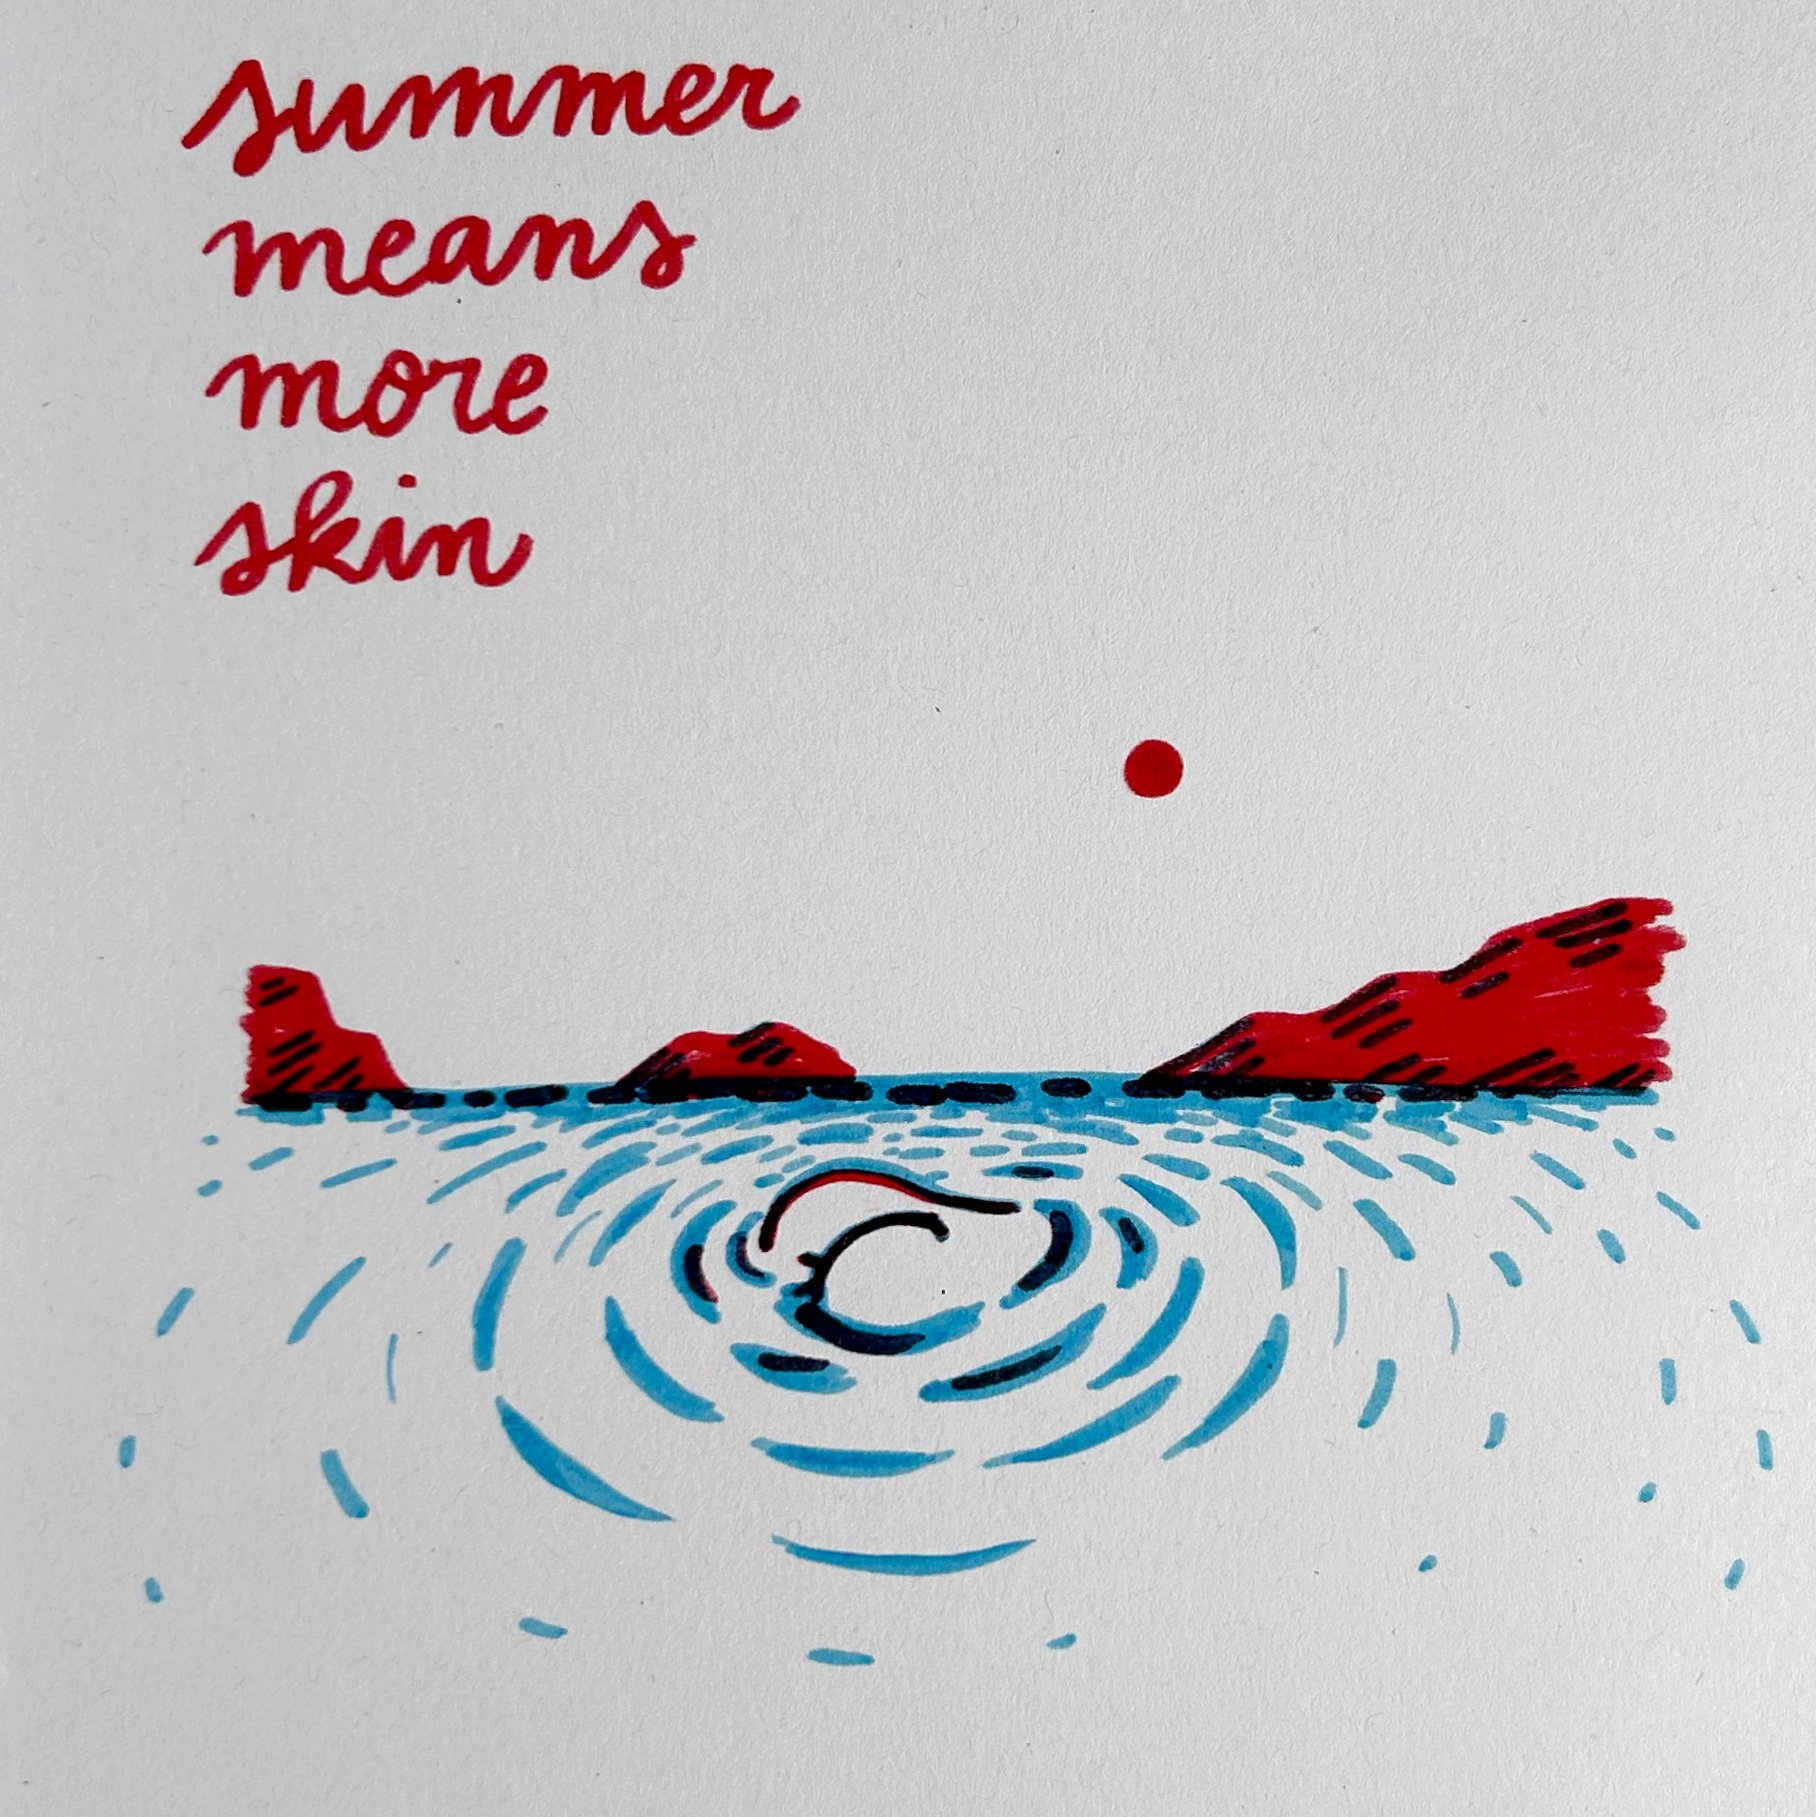 summer
means
more
skin